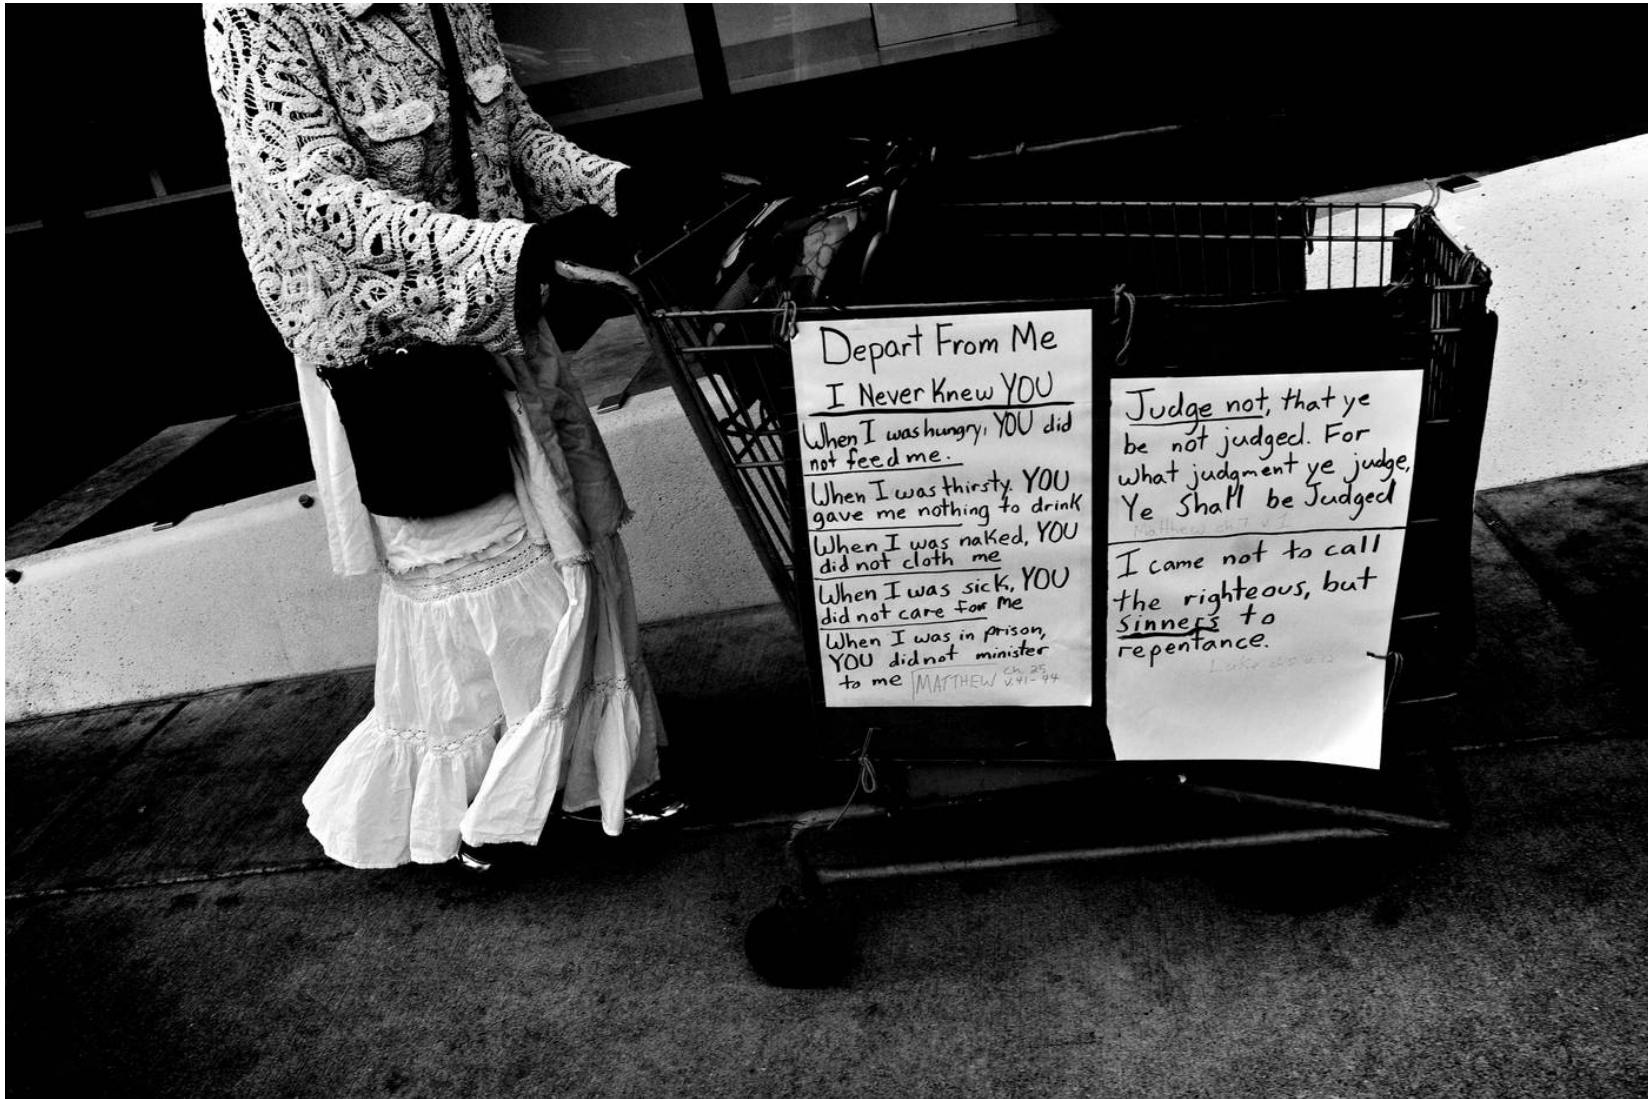 Depart From Me
I Never Knew YOU
When I was hungry, YOU did
not feed me.
When I was thirsty YOU
gave me nothing to drink
When I was naked, YOU
did not cloth me
When I was sick, YOU
did not care for me
When I was in prison,
YOU did not minister
to me MATTHEW ch. 25
v. 41-44
Judge not, that ye
be not judged. For
what judgment ye judge,
Ye Shall be Judged
Matthew ch 7 v 1
I came not to call
the righteous, but
sinners to
repentance.
Luke